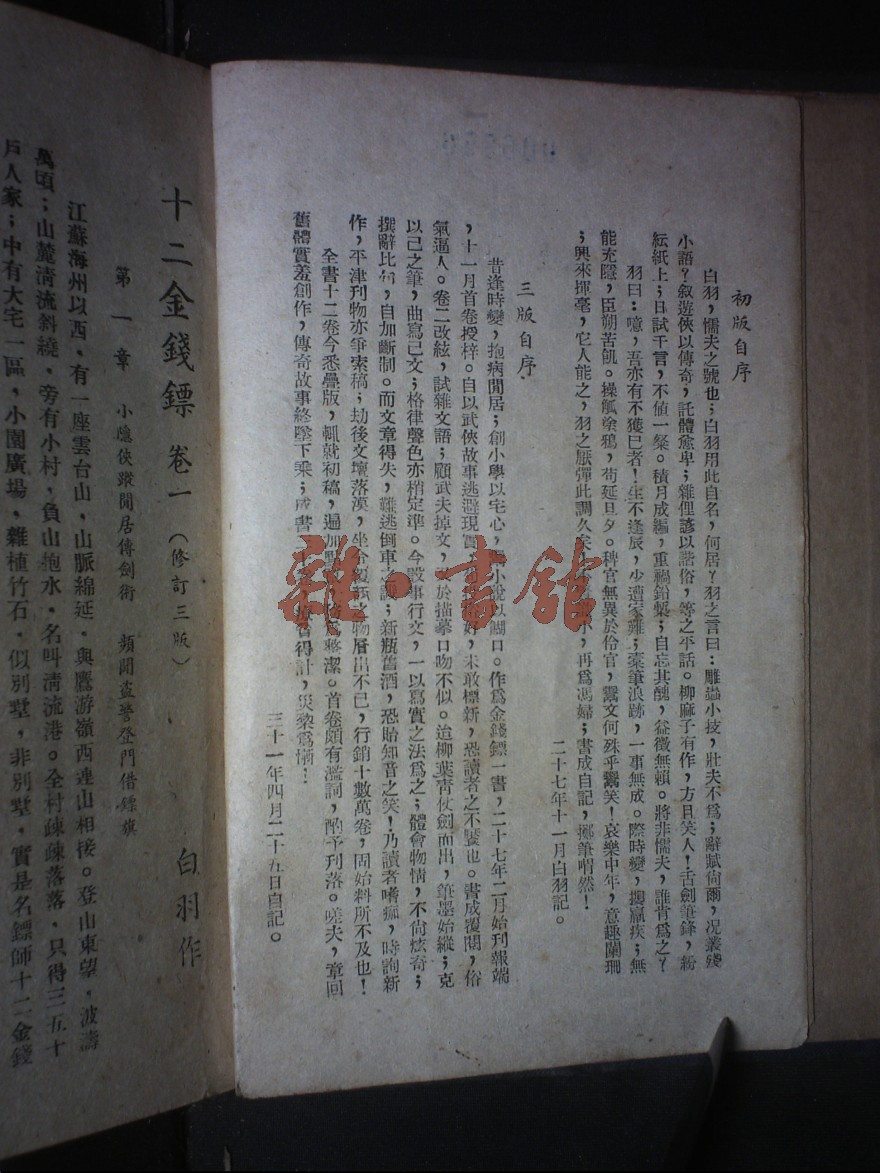 初版自序
白羽，懦夫之號也；白羽用此自名，何居？羽之言曰：雕蟲小技，壯夫不爲；辭賦尙爾，况叢殘
小語？叙遊俠以傳奇，託體愈卑；雜俚諺以諧俗，等之平話。柳麻子有作，方且笑人！舌劍筆鋒，紛
紜紙上；日試千言，不値一粲。積月成編，重禍鉛槧；自忘其醜，益徵無賴。將非懦夫，誰肯爲之？
羽曰：噫，吾亦有不獲已者！生不逢辰，少遭家難；橐筆浪跡，一事無成。際時變，攖羸疾；無
能充隱，臣朔苦飢。操觚塗鴉，苟延旦夕。稗官無異於伶官，鬻文何殊乎鬻笑！哀樂中年，意趣闌珊
；興來揮毫，它人能之，羽之厭彈此調久矣小，再爲馮婦；書成自記，擲筆喟然！
二十七年十一月白羽記。
三版自序
昔逢時變，抱病閒居；創小學以宅心，小說以餬口。作爲金錢鏢一書，二十七年二月始刊報端
，十一月首卷授梓。自以武俠故事逃避現實，好，未敢標新，恐讀者之不鑒也。書成覆閱，俗
氣逼人。卷二改絃，試雜文語；顧武夫掉文，於描摹口吻不似。迨柳葉靑仗劍而出，筆墨始縱；克
以己之筆，曲寫己文；格律聲色亦稍定準。今敍事行文，一以寫實之法爲之；體會物情，不尙炫奇；
撰辭比句，自加斷制。而文章得失，難逃倒車之；新瓶舊酒，恐貽知音之笑！乃讀者嗜痂，時詢新
作，平津刊物亦爭索稿；劫後文壇落漠，坐令覆瓿之物層出不已，行銷十數萬卷，固始料所不及也！
全書十二卷今悉疊版，輒就初稿，遍加點爲蔣潔。首卷頗有濫詞，酌予刊落。嗟夫，章回
舊體實羞創作，傳奇故事終墜下乘；成書得計，災棃爲愧！
三十一年四月二十五日自記。
十二金錢鏢 卷一（修訂三版）
白羽作
第一章 小隱俠蹤閒居傳劍術 頻聞盗警登門借鏢旗
江蘇海州以西，有一座雲台山，山脈綿延，與鷹游嶺西連山相接。登山東望，波濤
萬頃；山麓淸流斜繞，旁有小村，負山抱水，名叫淸流港。全村疎疎落落，只得三五十
戶人家；中有大宅一區，小園廣場，雜植竹石，似別墅，非別墅，實是名鏢師十二金錢
雜·書館